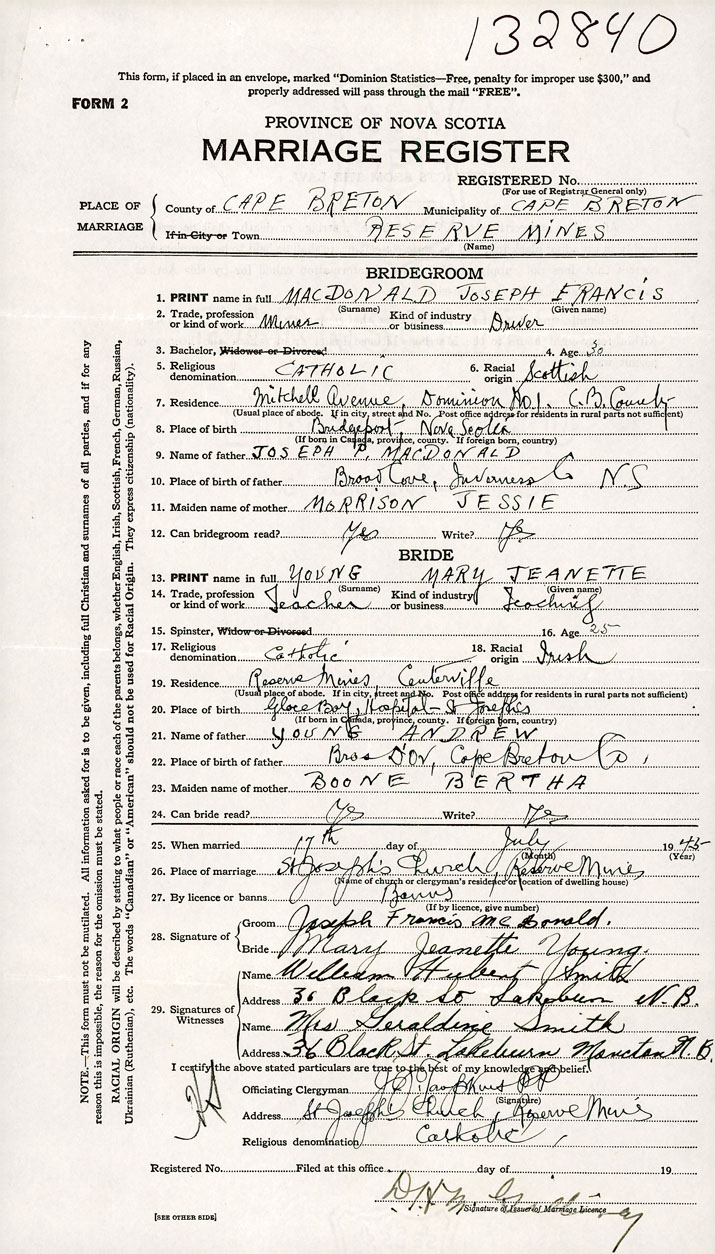 132840
This form, if placed in an envelope, marked "Dominion Statistics—Free, penalty for improper use $300," and
properly addressed will pass through the mail "FREE".
FORM 2
PROVINCE OF NOVA SCOTIA
MARRIAGE REGISTER
REGISTERED No.
(For use of Registrar General only)
PLACE OF MARRIAGE
County of CAPE BRETON Municipality of CAPE BRETON
If in City or Town RESERVE MINES
(Name)
BRIDEGROOM
1. PRINT name in full MACDONALD JOSEPH FRANCIS
(Surname) (Given name)
2. Trade, profession or kind of work Miner Kind of industry or business Driver
3. Bachelor, Widower or Divorced 4. Age 30
5. Religious denomination CATHOLIC 6. Racial origin Scottish
7. Residence Mitchell Avenue, Dominion No1. C.B. County
(Usual place of abode. If in city, street and No. Post office address for residents in rural parts not sufficient)
8. Place of birth Bridgeport, Nova Scotia
(If born in Canada, province, county. If foreign born, country)
9. Name of father JOSEPH P. MACDONALD
10. Place of birth of father Broad Cove, Inverness Co N.S
11. Maiden name of mother MORRISON JESSIE
12. Can bridegroom read? Yes Write? Yes
BRIDE
13. PRINT name in full YOUNG MARY JEANETTE
(Surname) (Given name)
14. Trade, profession or kind of work Teacher Kind of industry or business Teaching
15. Spinster, Widow or Divorced 16. Age 25
17. Religious denomination Catholic 18. Racial origin Irish
19. Residence Reserve Mines, Centerville
(Usual place of abode. If in city, street and No. Post office address for residents in rural parts not sufficient)
20. Place of birth Glace Bay, Hospital - St Josephs
(If born in Canada, province, county. If foreign born, country)
21. Name of father YOUNG ANDREW
22. Place of birth of father Bras D'Or, Cape Breton Co,
23. Maiden name of mother BOONE BERTHA
24. Can bride read? Yes Write? Yes
25. When married 17th day of July 1945
(Month) (Year)
26. Place of marriage St Joseph's Church, Reserve Mines
(Name of church or clergyman's residence or location of dwelling house)
27. By licence or banns Banns
(If by licence, give number)
28. Signature of
Groom Joseph Francis McDonald.
Bride Mary Jeanette Young.
29. Signatures of Witnesses
Name William Hubert Smith
Address 36 Black St Lakeburn N.B.
Name Mrs Geraldine Smith
Address 36 Black St. Lakeburn Moncton N.B.
I certify the above stated particulars are true to the best of my knowledge and belief.
Officiating Clergyman
(Signature)
Address St Joseph's Church, Reserve Mines
Religious denomination Catholic
Registered No. Filed at this office day of 19
Signature of Issuer of Marriage Licence
[SEE OTHER SIDE]
NOTE.—This form must not be mutilated. All information asked for is to be given, including full Christian and surnames of all parties, and if for any
reason this is impossible, the reason for the omission must be stated.
RACIAL ORIGIN will be described by stating to what people or race each of the parents belongs, whether English, Irish, Scottish, French, German, Russian,
Ukrainian (Ruthenian), etc. The words "Canadian" or "American" should not be used for Racial Origin. They express citizenship (nationality).